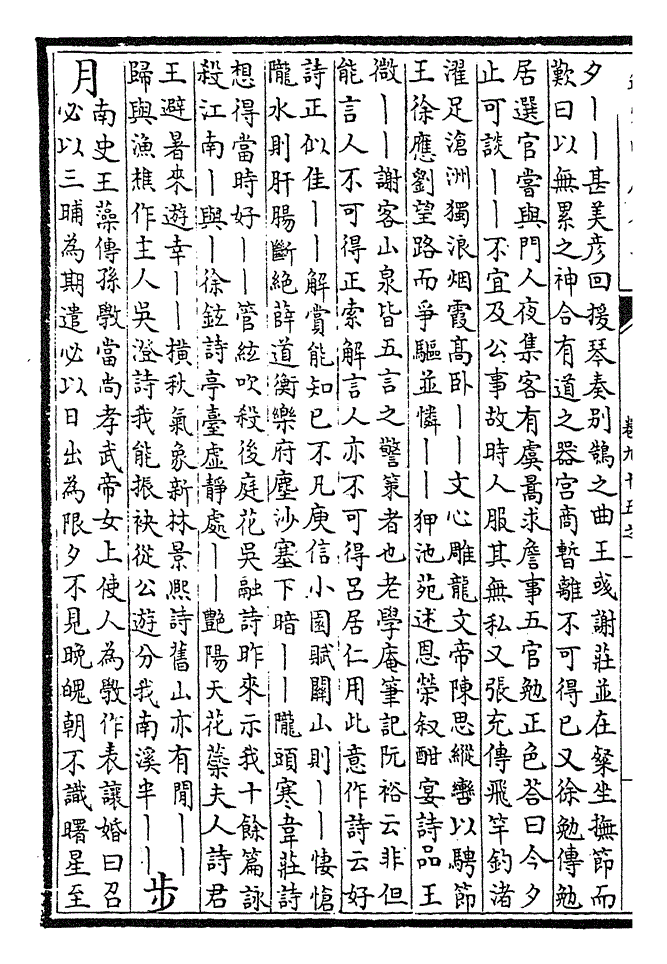 卷九十五之一
夕丨丨甚美彦回援琴奏别鵠之曲王彧謝莊並在粲坐撫節而
歎曰以無累之神合有道之器宫商暫離不可得已又徐勉傳勉
居選官嘗與門人夜集客有虞暠求詹事五官勉正色荅曰今夕
止可談丨丨不宜及公事故時人服其無私又張充傳飛竿釣渚
濯足滄洲獨浪烟霞高卧丨丨文心雕龍文帝陳思縱轡以騁節
王徐應劉望路而爭驅並憐丨丨狎池苑述恩榮叙酣宴詩品王
微丨丨謝客山泉皆五言之警策者也老學庵筆記阮裕云非但
能言人不可得正索解言人亦不可得吕居仁用此意作詩云好
詩正似佳丨丨解賞能知已不凡庾信小園賦關山則丨丨悽愴
隴水則肝腸斷絶薛道衡樂府塵沙塞下暗丨丨隴頭寒韋莊詩
想得當時好丨丨管絃吹殺後庭花吳融詩昨來示我十餘篇詠
殺江南丨與丨徐鉉詩亭臺虚靜處丨丨艷陽天花蘂夫人詩君
王避暑來遊幸丨丨横秋氣象新林景熙詩舊山亦有閒丨丨
歸與漁樵作主人吳澄詩我能振袂從公遊分我南溪半丨丨
步
月
南史王藻傳孫斆當尚孝武帝女上使人為斆作表讓婚曰召
必以三晡為期遣必以日出為限夕不見晚魄朝不識曙星至